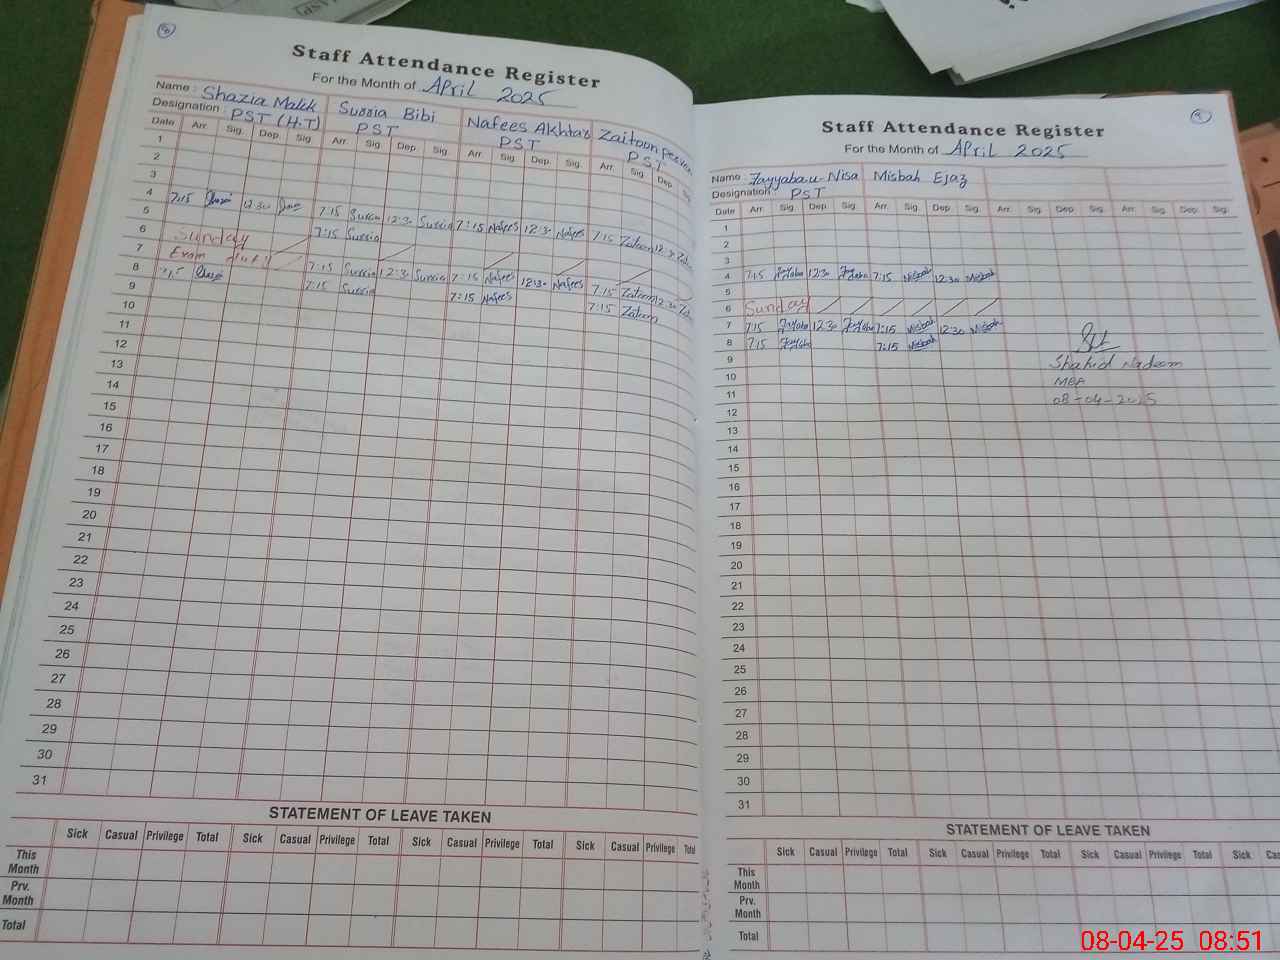 8
Staff Attendance Register
For the Month of April 2025
Name : Shazia Malik Surria Bibi Nafees Akhtar Zaitoon Perveen
Designation : PST (H.T) PST PST PST
Date Arr. Sig. Dep. Sig. Arr. Sig. Dep. Sig. Arr. Sig. Dep. Sig. Arr. Sig. Dep. Sig.
1
2
3
4 7:15 12:30 7:15 Surria 12:30 Surria 7:15 Nafees 12:30 Nafees 7:15 Zatoon 12:30
5 7:15 Surria
6 Sunday
7 Exam duty 7:15 Surria 12:30 Surria 7:15 Nafees 12:30 Nafees 7:15 Zatoon 12:30
8 7:15 7:15 Surria 7:15 Nafees 7:15 Zatoon
9
10
11
12
13
14
15
16
17
18
19
20
21
22
23
24
25
26
27
28
29
30
31
STATEMENT OF LEAVE TAKEN
Sick Casual Privilege Total Sick Casual Privilege Total Sick Casual Privilege Total Sick Casual Privilege Total
This Month
Prv. Month
Total
9
Staff Attendance Register
For the Month of April 2025
Name : Tayyaba-u-Nisa Misbah Ejaz
Designation : PST
Date Arr. Sig. Dep. Sig. Arr. Sig. Dep. Sig. Arr. Sig. Dep. Sig. Arr. Sig. Dep. Sig.
1
2
3
4 7:15 12:30 7:15 Misbah 12:30 Misbah
5
6 Sunday
7 7:15 12:30 7:15 Misbah 12:30 Misbah
8 7:15 7:15 Misbah
9
10
11
12
13
14
15
16
17
18
19
20
21
22
23
24
25
26
27
28
29
30
31
Shahid Nadeem
MEA
08-04-2025
STATEMENT OF LEAVE TAKEN
Sick Casual Privilege Total Sick Casual Privilege Total Sick Casual Privilege Total Sick Casual
This Month
Prv. Month
Total
08-04-25 08:51